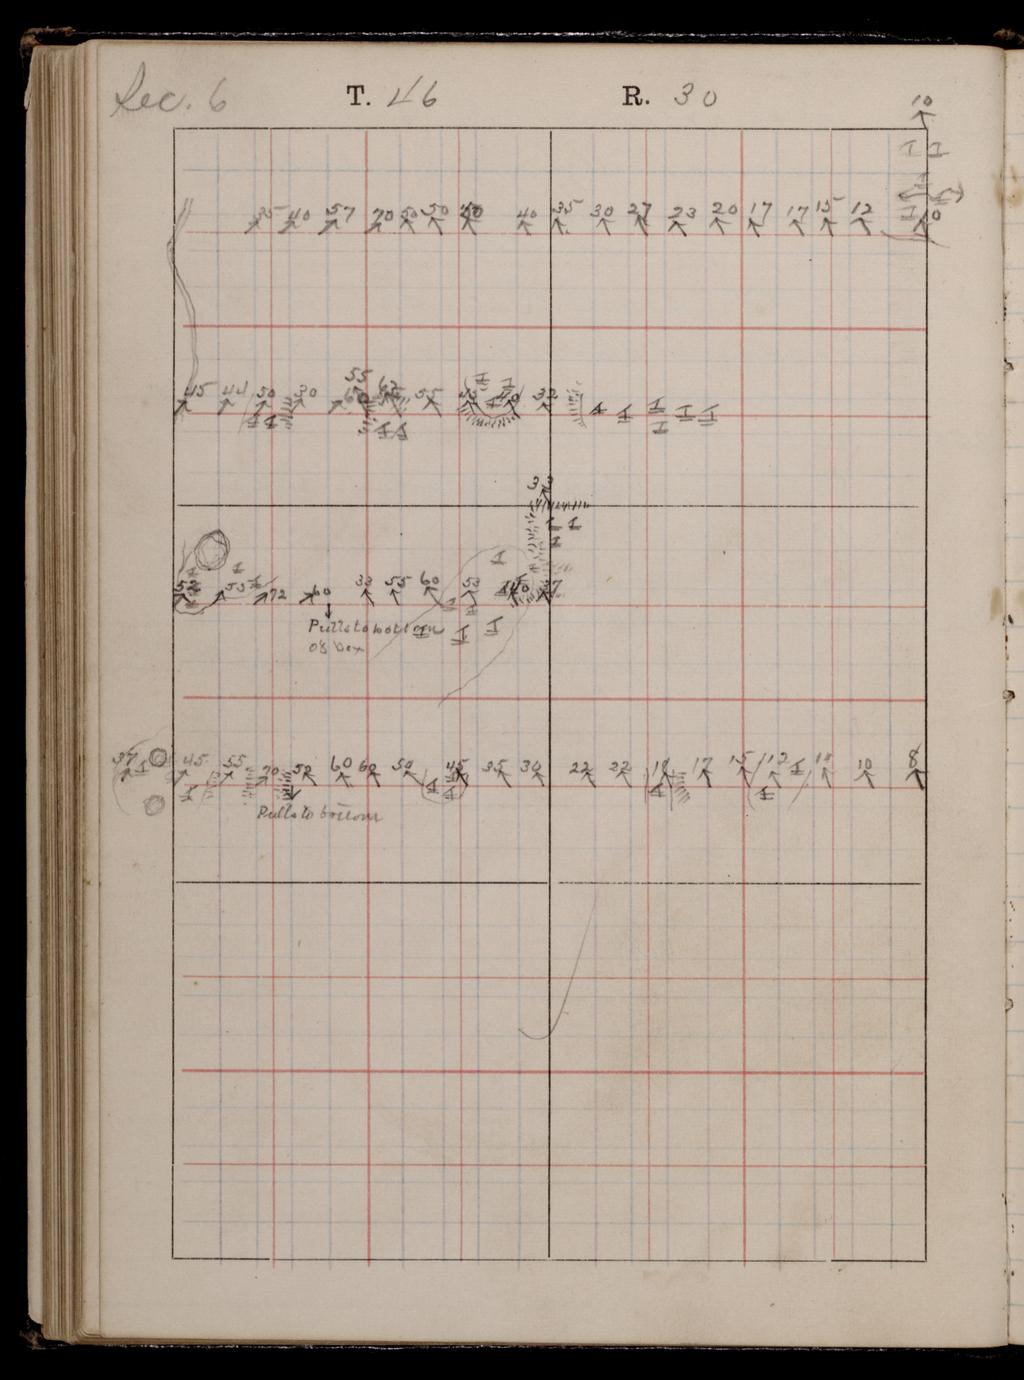 Sec. 6 T. 46 R. 30
10
35 40 57 70 50 50 40 35 30 27 23 20 17 17 15 12
55
45 44 50 30 55 32
33
53 72 60 33 55 60 53 37
Pulls to bottom
of box
37 45 55 70 50 60 60 50 45 35 30 22 22 18 17 15 12 10 8
Pulls to bottom